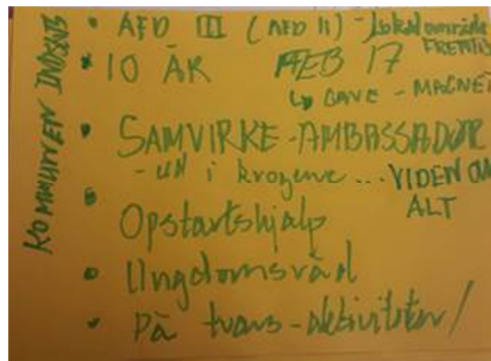 KOMMUNEN INDSATS
• AFD III (AFD II) - Lokalområde
FREMTID
• 10 ÅR FEB 17
↳ GAVE - MAGNET
• SAMVIRKE-AMBASSADØR
- UN i krogene... VIDEN OM
ALT
• Opstartshjælp
• Ungdomsråd
• På tværs-aktiviteter/